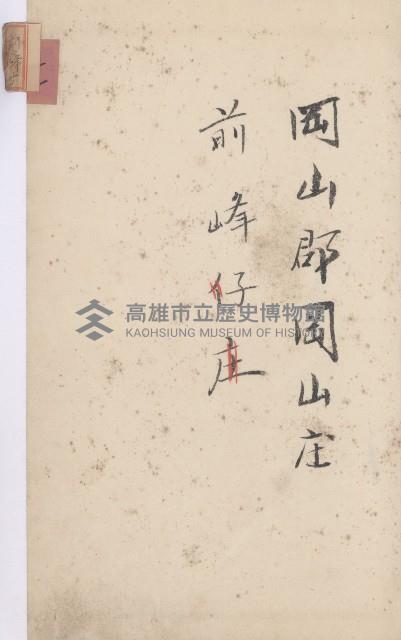 岡山郡岡山庄
前峰仔庄
高雄市立歷史博物館
KAOHSIUNG MUSEUM OF HISTORY